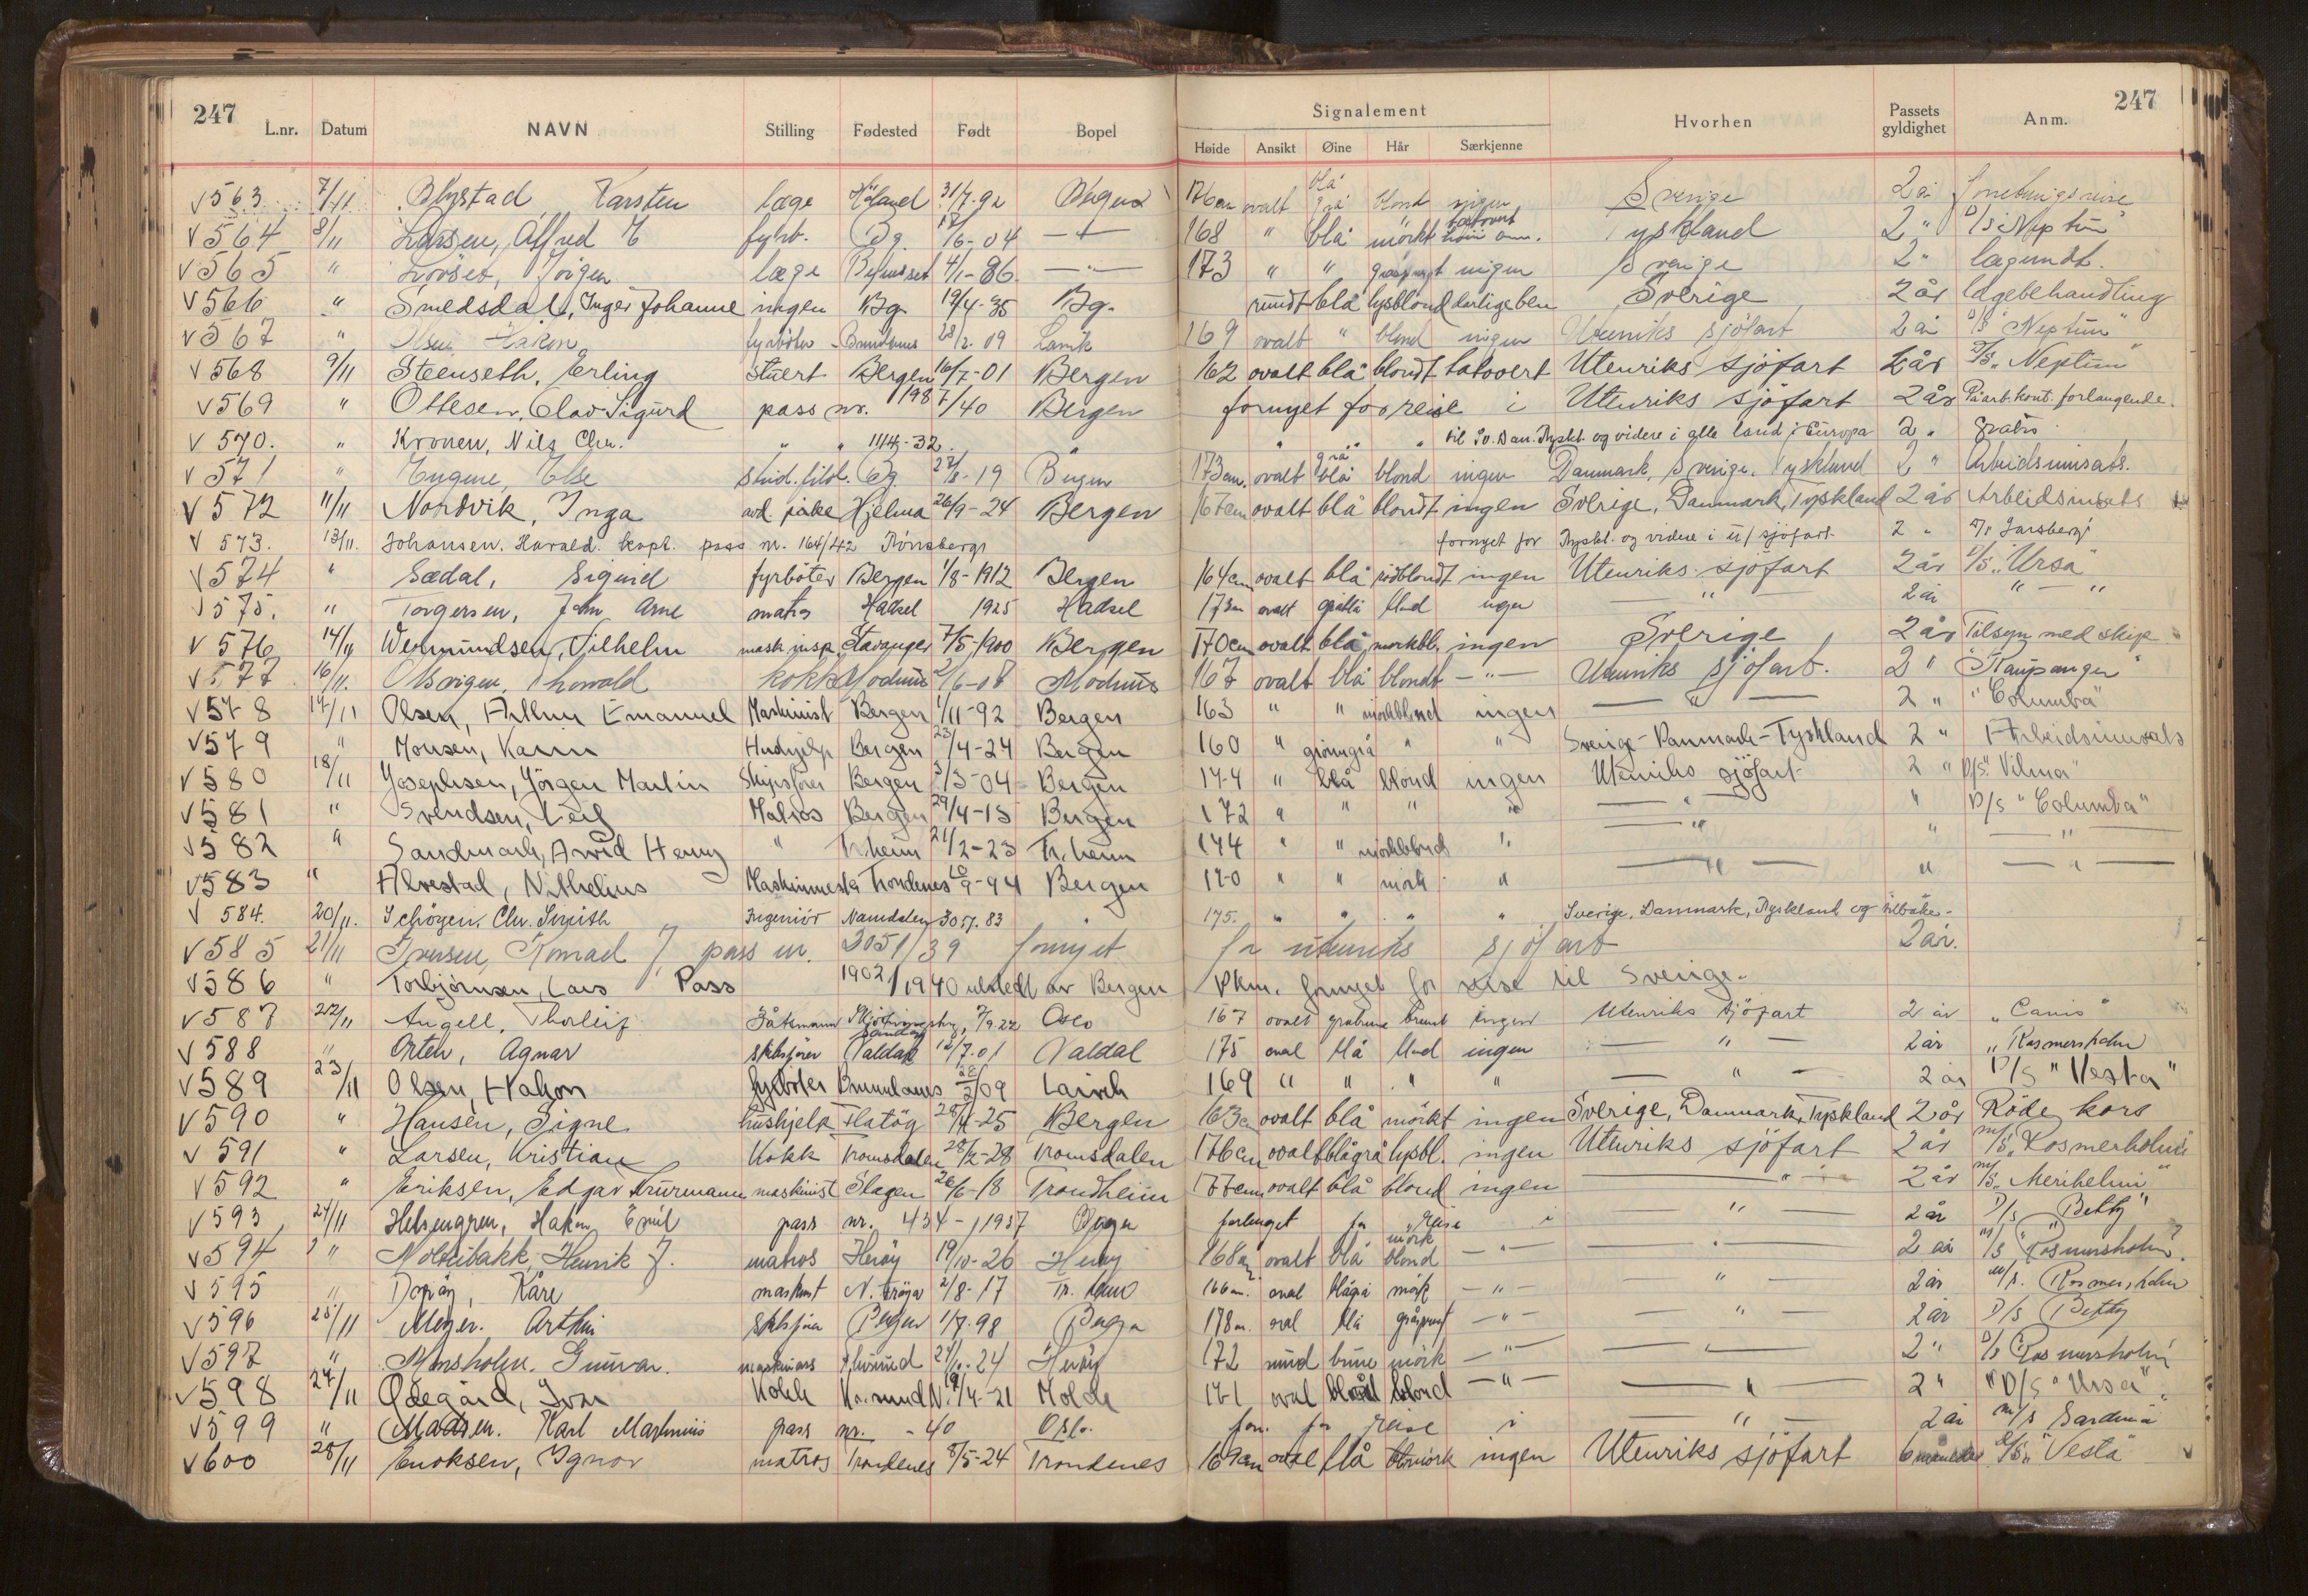 247 247
L.nr. Datum NAVN Stilling Fødested Født Bopel Signalement Hvorhen Passets gyldighet Anm.
Høide Ansikt Øine Hår Særkjenne
V 563 7/11 Blystad Karsten læge Höland 31/7-92 Bergen 176 cm ovalt blå grå blond ingen Sverige 2 år
V 564 8/11 Larsen, Alfred fyrb. Bg. 17/6-04 — " — 168 " blå mörkt tatovert Tyskland 2 " D/S "Neptun"
V 565 " læge 4/1-86 — " — 173 " " ingen Sverige 2 "
V 566 " Smedsdal, Inger Johanne ingen Bg. 19/4-35 Bg. rundt blå lysblond Sverige 2 år lægebehandling
V 567 " Olsen Håkon fyrböter Brunlanes 28/2-09 Larvik 169 ovalt " blond ingen Utenriks sjöfart 2 år D/S "Neptun"
V 568 9/11 Steenseth, Erling stuert Bergen 16/7-01 Bergen 162 ovalt blå blondt tatovert Utenriks sjöfart 2 år D/S "Neptun"
V 569 " Ottesen, Olav Sigurd pass nr. 1987/40 Bergen fornyet for reise i Utenriks sjöfart 2 år På arb.kont. forlangende.
V 570. " Kronen, Nils Chr. " " 1114-32. " " " til Sv. Dan. Tyskl. og videre i alle land i Europa 2 " gratis
V 571 " Else stud. filol. Bg. 27/8-19 Bergen 173 cm. ovalt grå blå blond ingen Danmark, Sverige, Tyskland 2 " Arbeidsinnsats.
V 572 11/11 Nordvik, Inga Hjelma 26/9-24 Bergen 167 cm ovalt blå blondt ingen Sverige, Danmark, Tyskland 2 år Arbeidsinsats
V 573. 13/11. Johansen. Harald. kapt. pass nr. 164/42 Tönsberg fornyet for Tyskl. og videre i u/sjöfart 2 " "Jarsberg"
V 574 " Sædal, Sigurd fyrböter Bergen 1/8-1912 Bergen 164 cm ovalt blå rödblondt ingen Utenriks sjöfart 2 år D/S "Ursa"
V 575. " Torgersen, John Arne matros Hadsel 1925 Hadsel 173 cm ovalt gråblå blond ingen — " — 2 år " — "
V 576 14/11 Wermundsen, Vilhelm mask.insp. Stavanger 7/5-1900 Bergen 170 cm ovalt blå mörkbl. ingen Sverige 2 år Tilsyn med skip
V 577 16/11. Thorvald kokk Modum 2/6-08 Modum 167 ovalt blå blondt — " — Utenriks sjöfart. 2 " "Kaupanger"
V 578 17/11 Olsen, Arthur Emanuel Maskinist Bergen 1/11-92 Bergen 163 " " mörkblond ingen — " — 2 " "Columba"
V 579 " Monsen, Karin Hushjelp Bergen 23/4-24 Bergen 160 " gröngrå " " Sverige-Danmark-Tyskland 2 " Arbeidsinnsats
V 580 18/11 Josephsen, Jörgen Martin Skipsförer Bergen 3/3-04 Bergen 174 " blå blond ingen Utenriks sjöfart 2 " D/S "Vilma"
V 581 " Svendsen, Leif Matros Bergen 29/4-15 Bergen 172 " " " " — " — " D/S "Columba"
V 582 " Sandmark, Arvid Henry " Tr.heim 21/2-23 Tr.heim 174 " " mörkblond " — " — " — " —
V 583 " Alvestad, Vilhelius Trondenes Bergen 170 " " mörk " — " — " — " —
V 584. 20/11. Schöyen, Chr. Smith Ingeniör Namdalen 30.5.83 " 175. " " " " Sverige, Danmark, Tyskland og tilbake-
V 585 21/11 Iversen, Konrad J. pass nr. 3051/39 fornyet for utenriks sjöfart 2 år.
V 586 " Torbjörnsen, Lars Pass 1902/1940 utstedt av Bergen Pkm. fornyet for reise til Sverige.
V 587 22/11 Angell, Thorleif Båtsmann Oslo 167 ovalt brunt ingen Utenriks sjöfart 2 år "Canis"
V 588 " Orten, Agnar skibsförer 12/7-01 Valdal 175 oval blå blond ingen — " — 2 år "Rosmersholm
V 589 23/11 Olsen, Håkon fyrböter Brunlanes 28/2/09 Larvik 169 " " " " — " — 2 år D/S "Vesta"
V 590 " Hansen, Signe hushjelp Flatöy 28/4-25 Bergen 163 cm ovalt blå mörkt ingen Sverige, Danmark, Tyskland 2 år Röde kors
V 591 " Larsen, Kristian Kokk Tromsdalen 28/2-28 Tromsdalen 176 cm ovalt blågrå lysbl. ingen Utenriks sjöfart 2 år m/S "Rosmerholm"
V 592 " Eriksen, Edgar maskinist Slagen 26/6-18 Trondheim 177 cm ovalt blå blond ingen — " — 2 år m/S "
V 593 24/11 Helsengren, Hakon Emil pass nr. 434-1937 Bergen forlenget for reise i — " — 2 år D/s "Betty"
V 594 " Henrik J. matros Heröy 19/10-26 Heröy 168 cm ovalt blå mörk blond — " — — " — 2 år m/s "Rosmersholm".
V 595 " Kåre maskinist 2/8-17 Tr. heim 166 cm. oval blågrå mörk — " — — " — 2 år m/s. Rosmersholm
V 596 25/11 Meyer. Arthur Skbsförer Bergen 1/7-98 Bergen 178 cm. oval blå — " — — " — 2 år D/s Betty
V 597 " Gunvar. Heröy 172 rund brune mörk — " — — " — 2 " Rosmersholm
V 598 27/11 Ödegård, Ivar Kokk Kr.sund N. 19/4-21 Molde 171 oval blond — " — — " — 2 " "D/S "Ursa"
V 599 " Madsen. Karl pass nr. -40 Oslo. forn. for reise i — " — 2 år m/s Sardinia
V 600 28/11 Enoksen, Ignor matros Trondenes 8/5-24 Trondenes 169 cm oval blå mörk ingen Utenriks sjöfart 6 måneder "Vesta"